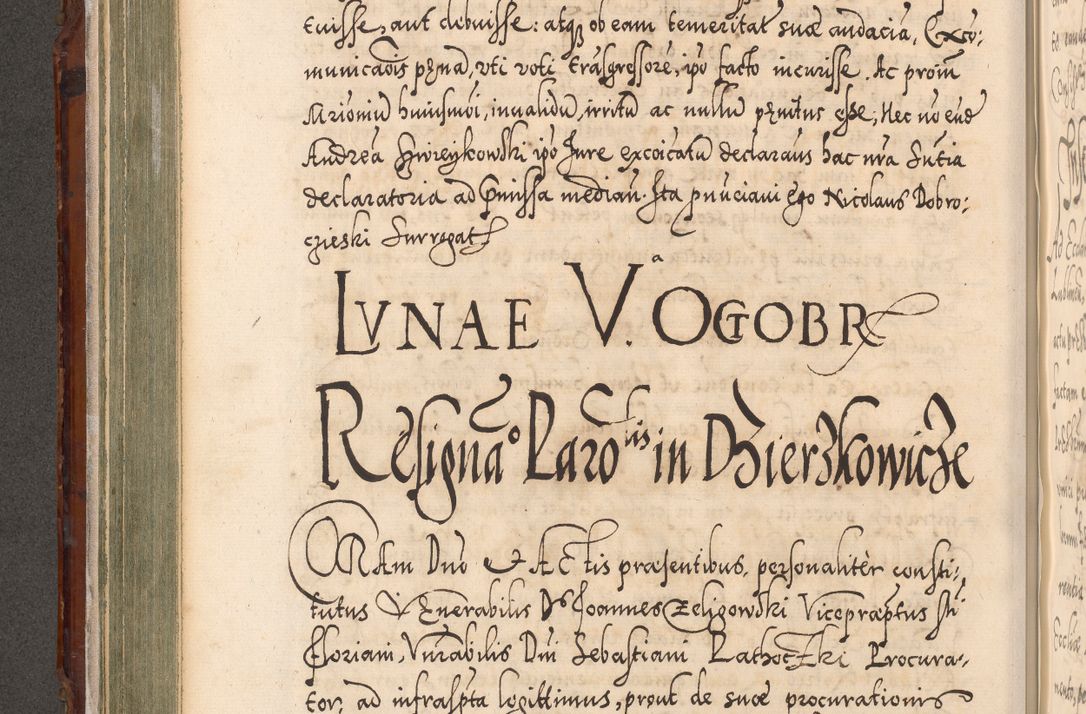 tuisse, aut debuisse: atq3 ob eam temeritat suæ audacia, Exco:
municaōis pęna, uti voti trāsgressorē, ipō facto incurisse. Ac proin
Mrioniū huiusmōi, inualidū, irritū ac nullū pęnitus esse; Nec nō eūd
Andreā ipō Jure excōicatū declaraūs hac nrā Sntia
declaratoria ad pmissa mediañ. Ita pnūciaui Ego Nicolaus Dobro:
czieski Surrogat
LVNAE V.ª OCTOBR
Resignāº Paroctis in Dzierzkowicze
CORAm Dno & ACtis præsentibus, personalitèr consti:
tutus Venerabilis Ds Joannes Zeligowski Vicepræptus Sti
Floriani, Vnrabilis Dni Sebastiani Procura:
tor, ad infrascpta legittimus, prout de suæ procurationis